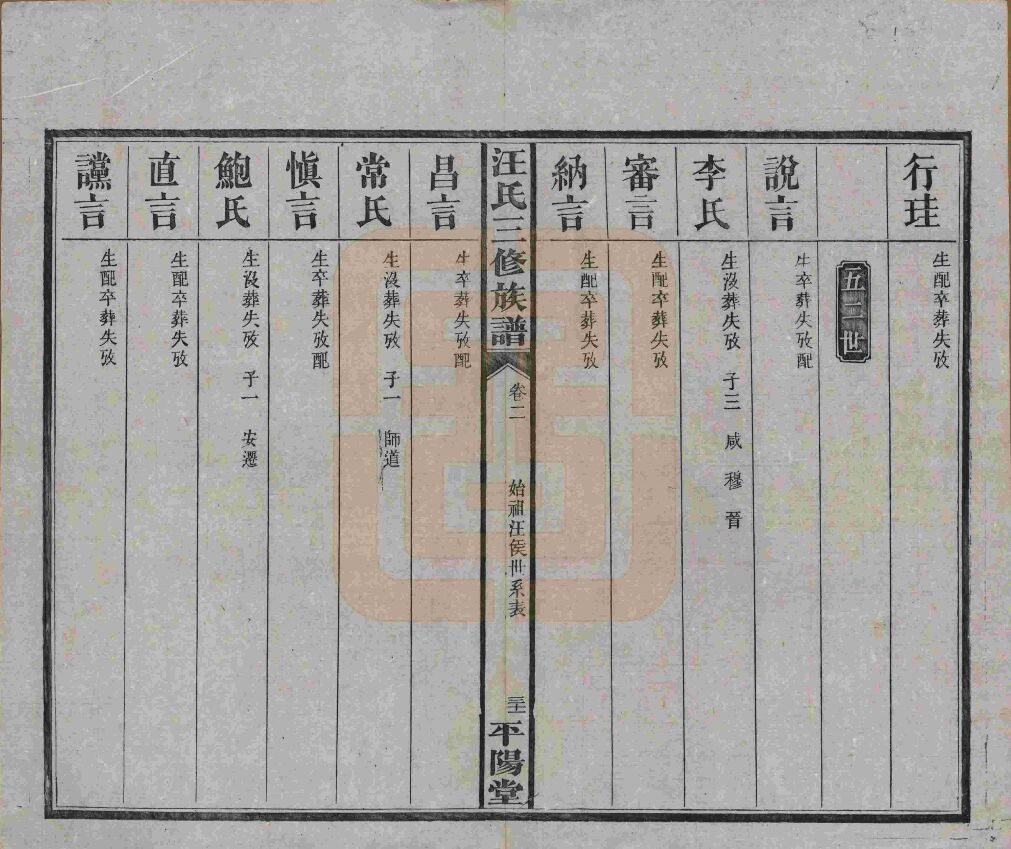 行珪
生配卒葬失攷
五二世
說言
生卒葬失攷配
李氏
生沒葬失攷 子三 咸 穆 晉
審言
生配卒葬失攷
納言
生配卒葬失攷
汪氏三修族譜 卷二 始祖汪侯世系表 三十一 平陽堂
昌言
生卒葬失攷配
常氏
生沒葬失攷 子一 師道
慎言
生卒葬失攷配
鮑氏
生沒葬失攷 子一 安遷
直言
生配卒葬失攷
讜言
生配卒葬失攷